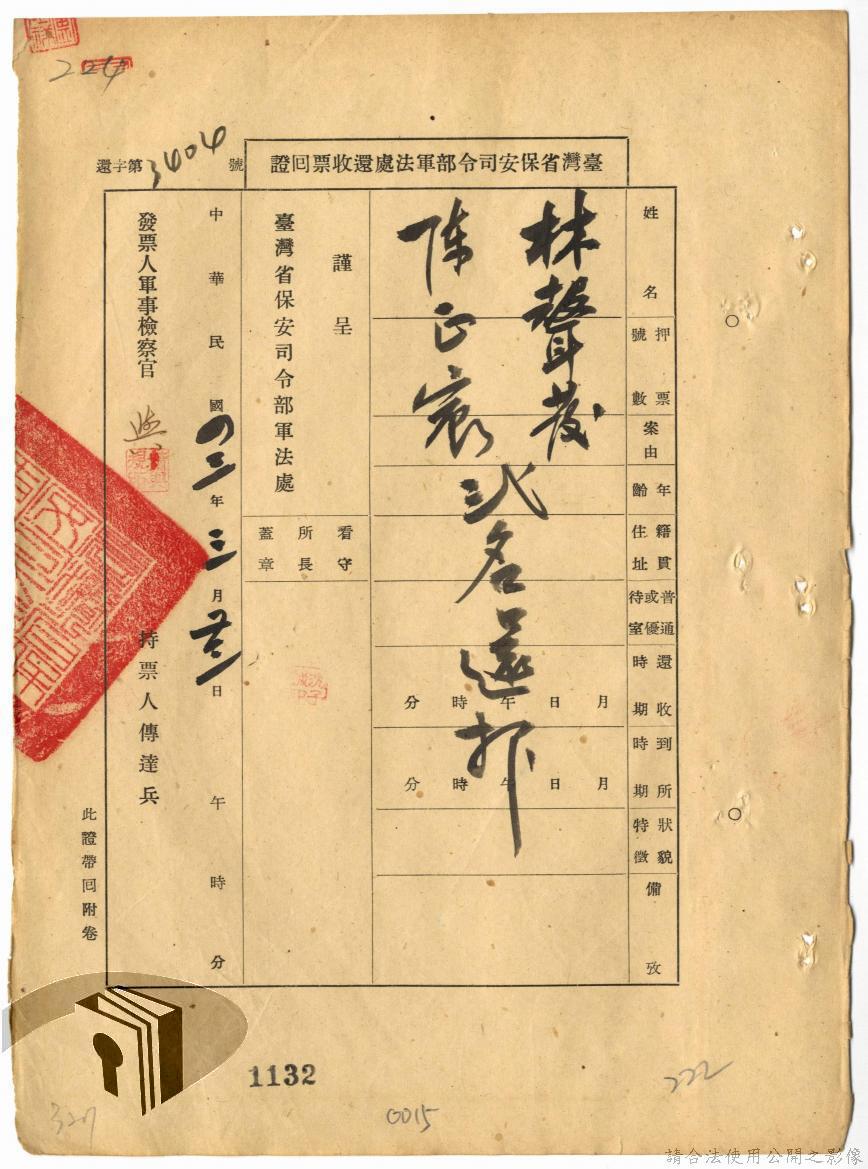 224
臺灣省保安司令部軍法處還收票回證
還字第3404號
姓名
押票號數
案由
年齡
籍貫住址
普通或優待室
還收時期
到所時期
狀貌特徵
備攷
林聲發
陈正宸
弍名還押
月日午時分
月日午時分
謹呈
臺灣省保安司令部軍法處
看守所長蓋章
中華民國四三年三月廿三日午時分
發票人軍事檢察官
持票人傳達兵
此證帶回附卷
1132
0015
222
327
請合法使用公開之影像